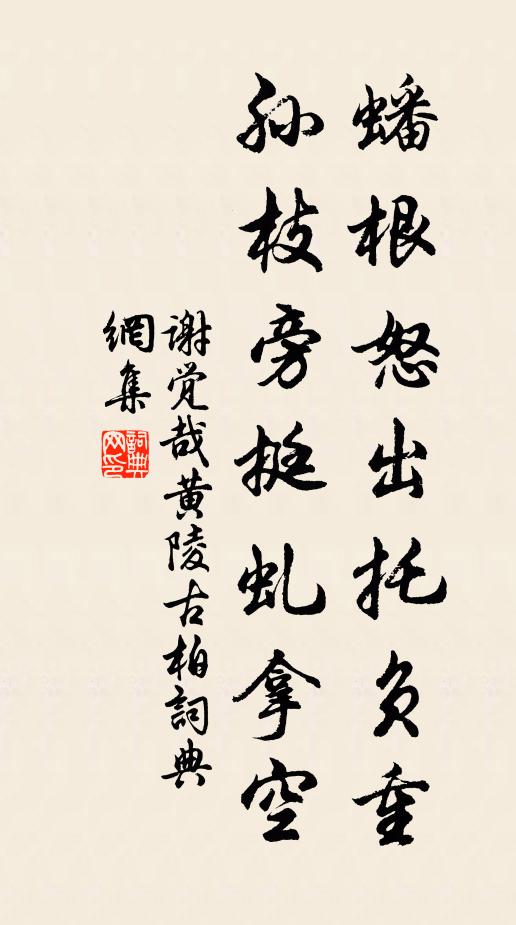 蟠根怒出托负重
孙枝旁挺虬拿空
谢觉哉黄陵古柏詞典
網集
詞典網印